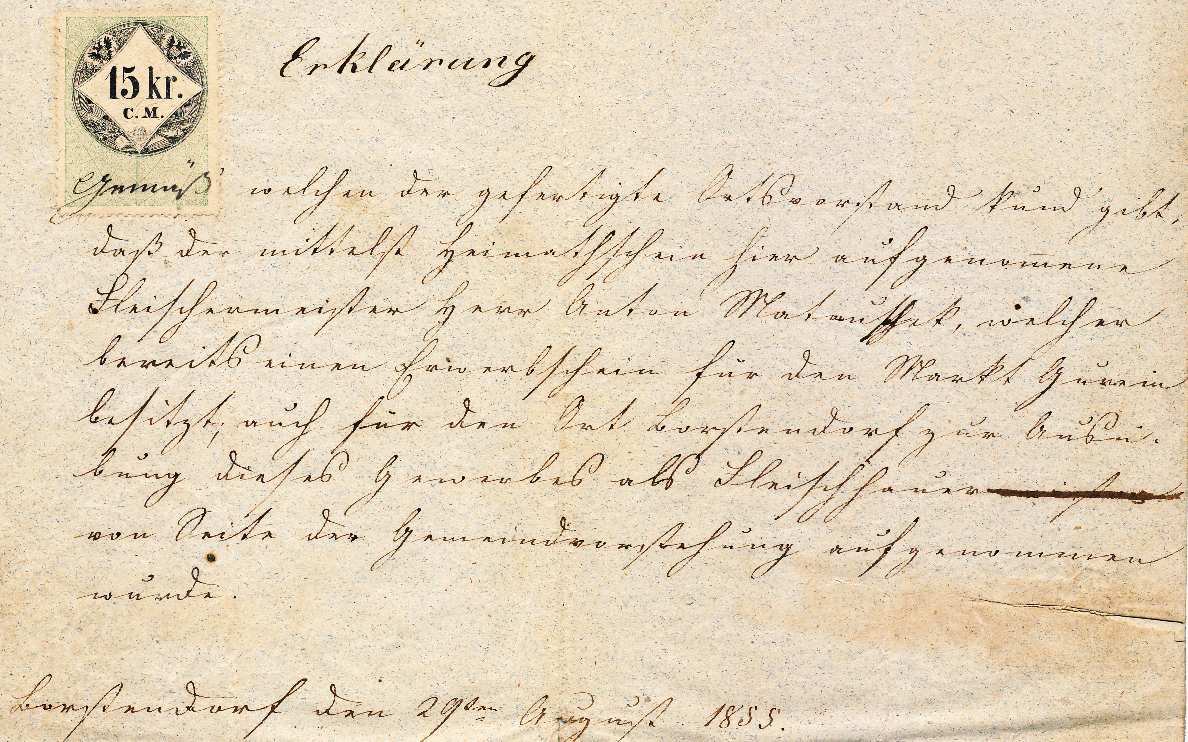 15 kr.
C.M.
Erklärung
Gemäß welchen der gefertigte Ortsvorstand kund gibt,
daß der mittelst Heimathschein hier aufgenomene
Fleischermeister Herr Anton Matauschek, welcher
bereits einen Erwerbschein für den Markt Gurein
besitzt, auch für den Ort Borstendorf zur Ausü-
bung dieses Gewerbes als Fleischhauer
von Seite der Gemeindvorstehung aufgenommen
wurde.
Borstendorf den 29ten August 1855.